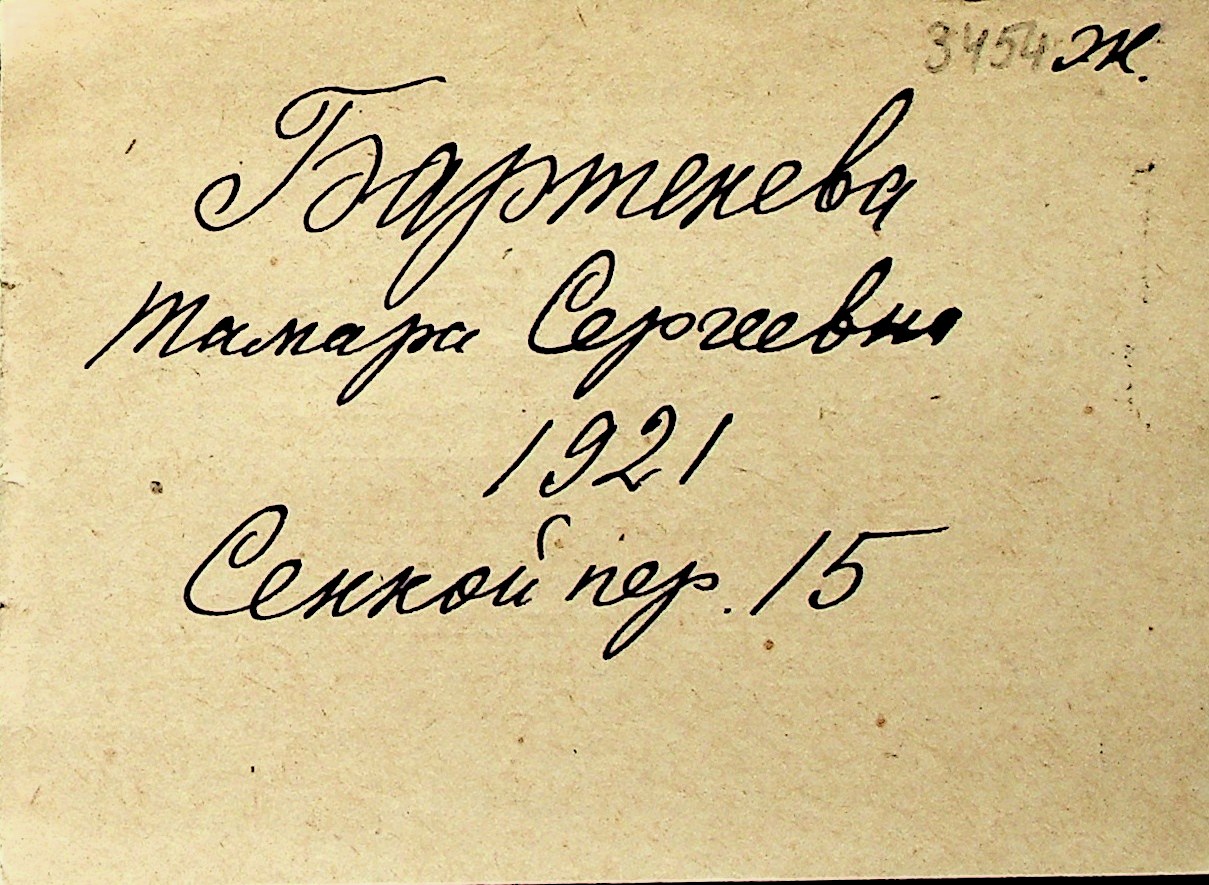 3454 ж.
Бартенева
Тамара Сергеевна
1921
Сенкой пер. 15